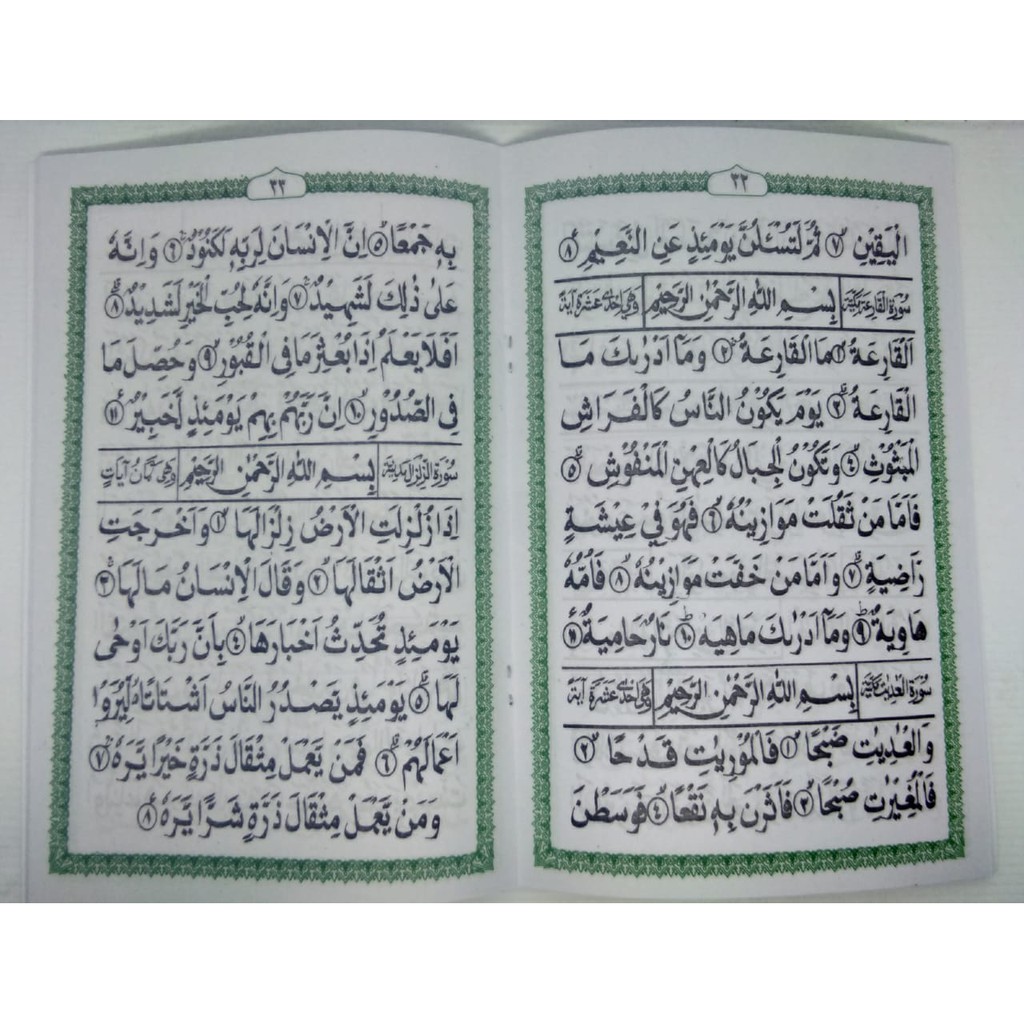 ٣٢
الْيَقِيْنِ ٧ ثُمَّ لَتُسْـَٔلُنَّ يَوْمَئِذٍ عَنِ النَّعِيْمِ ٨
سُوْرَةُ الْقَارِعَةِ مَكِّيَّةٌ بِسْمِ اللهِ الرَّحْمٰنِ الرَّحِيْمِ وَهِيَ اِحْدٰى عَشَرَةَ اٰيَةً
اَلْقَارِعَةُ ١ مَا الْقَارِعَةُ ٢ وَمَآ اَدْرٰىكَ مَا
الْقَارِعَةُ ٣ يَوْمَ يَكُوْنُ النَّاسُ كَالْفَرَاشِ
الْمَبْثُوْثِ ٤ وَتَكُوْنُ الْجِبَالُ كَالْعِهْنِ الْمَنْفُوْشِ ٥
فَاَمَّا مَنْ ثَقُلَتْ مَوَازِيْنُهُ ٦ فَهُوَ فِيْ عِيْشَةٍ
رَّاضِيَةٍ ٧ وَاَمَّا مَنْ خَفَّتْ مَوَازِيْنُهُ ٨ فَاُمُّهُ
هَاوِيَةٌ ٩ وَمَآ اَدْرٰىكَ مَاهِيَهْ ١٠ نَارٌ حَامِيَةٌ ١١
سُوْرَةُ الْعٰدِيٰتِ مَكِّيَّةٌ بِسْمِ اللهِ الرَّحْمٰنِ الرَّحِيْمِ وَهِيَ اِحْدٰى عَشَرَةَ اٰيَةً
وَالْعٰدِيٰتِ ضَبْحًا ١ فَالْمُوْرِيٰتِ قَدْحًا ٢
فَالْمُغِيْرٰتِ صُبْحًا ٣ فَاَثَرْنَ بِهٖ نَقْعًا ٤ فَوَسَطْنَ
٣٣
بِهٖ جَمْعًا ٥ اِنَّ الْاِنْسَانَ لِرَبِّهٖ لَكَنُوْدٌ ٦ وَاِنَّهٗ
عَلٰى ذٰلِكَ لَشَهِيْدٌ ٧ وَاِنَّهٗ لِحُبِّ الْخَيْرِ لَشَدِيْدٌ ٨
اَفَلَا يَعْلَمُ اِذَا بُعْثِرَ مَا فِى الْقُبُوْرِ ٩ وَحُصِّلَ مَا
فِى الصُّدُوْرِ ١٠ اِنَّ رَبَّهُمْ بِهِمْ يَوْمَئِذٍ لَّخَبِيْرٌ ١١
سُوْرَةُ الزِّلْزَالِ مَدَنِيَّةٌ بِسْمِ اللهِ الرَّحْمٰنِ الرَّحِيْمِ وَهِيَ ثَمَانُ اٰيَاتٍ
اِذَا زُلْزِلَتِ الْاَرْضُ زِلْزَالَهَا ١ وَاَخْرَجَتِ
الْاَرْضُ اَثْقَالَهَا ٢ وَقَالَ الْاِنْسَانُ مَالَهَا ٣
يَوْمَئِذٍ تُحَدِّثُ اَخْبَارَهَا ٤ بِاَنَّ رَبَّكَ اَوْحٰى
لَهَا ٥ يَوْمَئِذٍ يَّصْدُرُ النَّاسُ اَشْتَاتًا لِّيُرَوْا
اَعْمَالَهُمْ ٦ فَمَنْ يَّعْمَلْ مِثْقَالَ ذَرَّةٍ خَيْرًا يَّرَهٗ ٧
وَمَنْ يَّعْمَلْ مِثْقَالَ ذَرَّةٍ شَرًّا يَّرَهٗ ٨